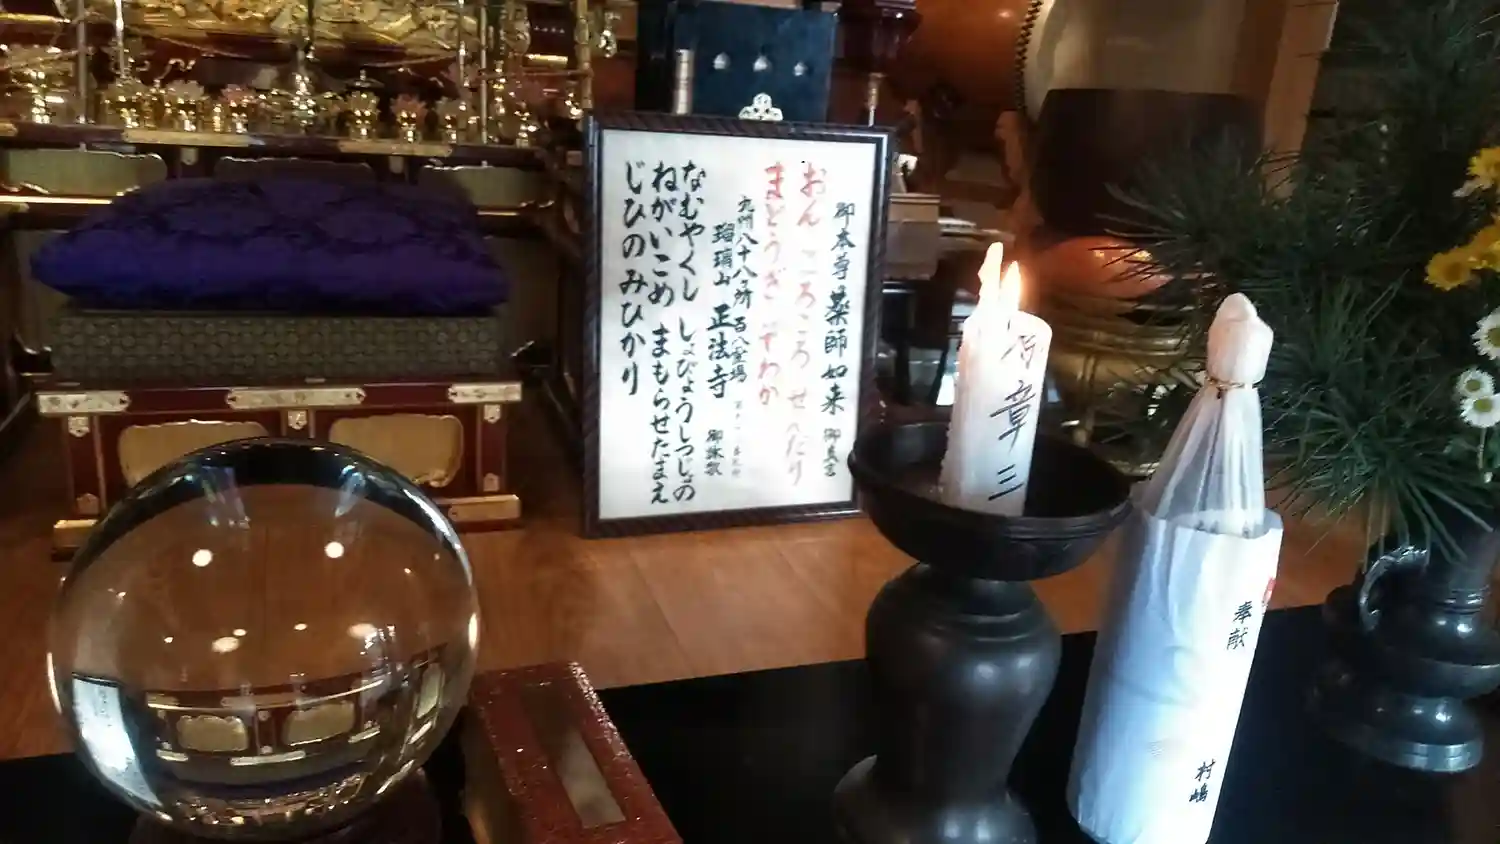 御本尊 薬師如来 御真言
おん ころころ せんだり
まとうぎ そわか
九州八十八ヶ所 百八霊場
瑠璃山 正法寺 御詠歌
なむやくし しょびょうしつじょの
ねがいこめ まもらせたまえ
じひのみひかり
章三
奉献
村嶋